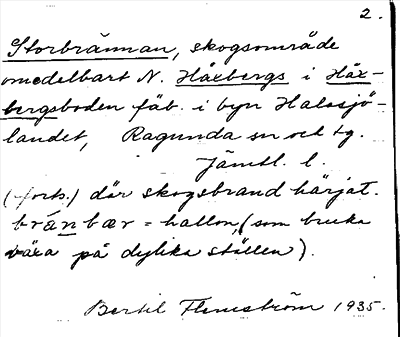 2.
Storbrännan, skogsområde
omedelbart N. Häxbergs i Häx-
bergsboden fäb. i byn Halasjö-
landet, Ragunda sn och tg.
Jämtl. l.
(forts.) där skogsbrand härjat.
bränbær = hallon, (som bruka
växa på dylika ställen).
Bertil Flemström 1935.